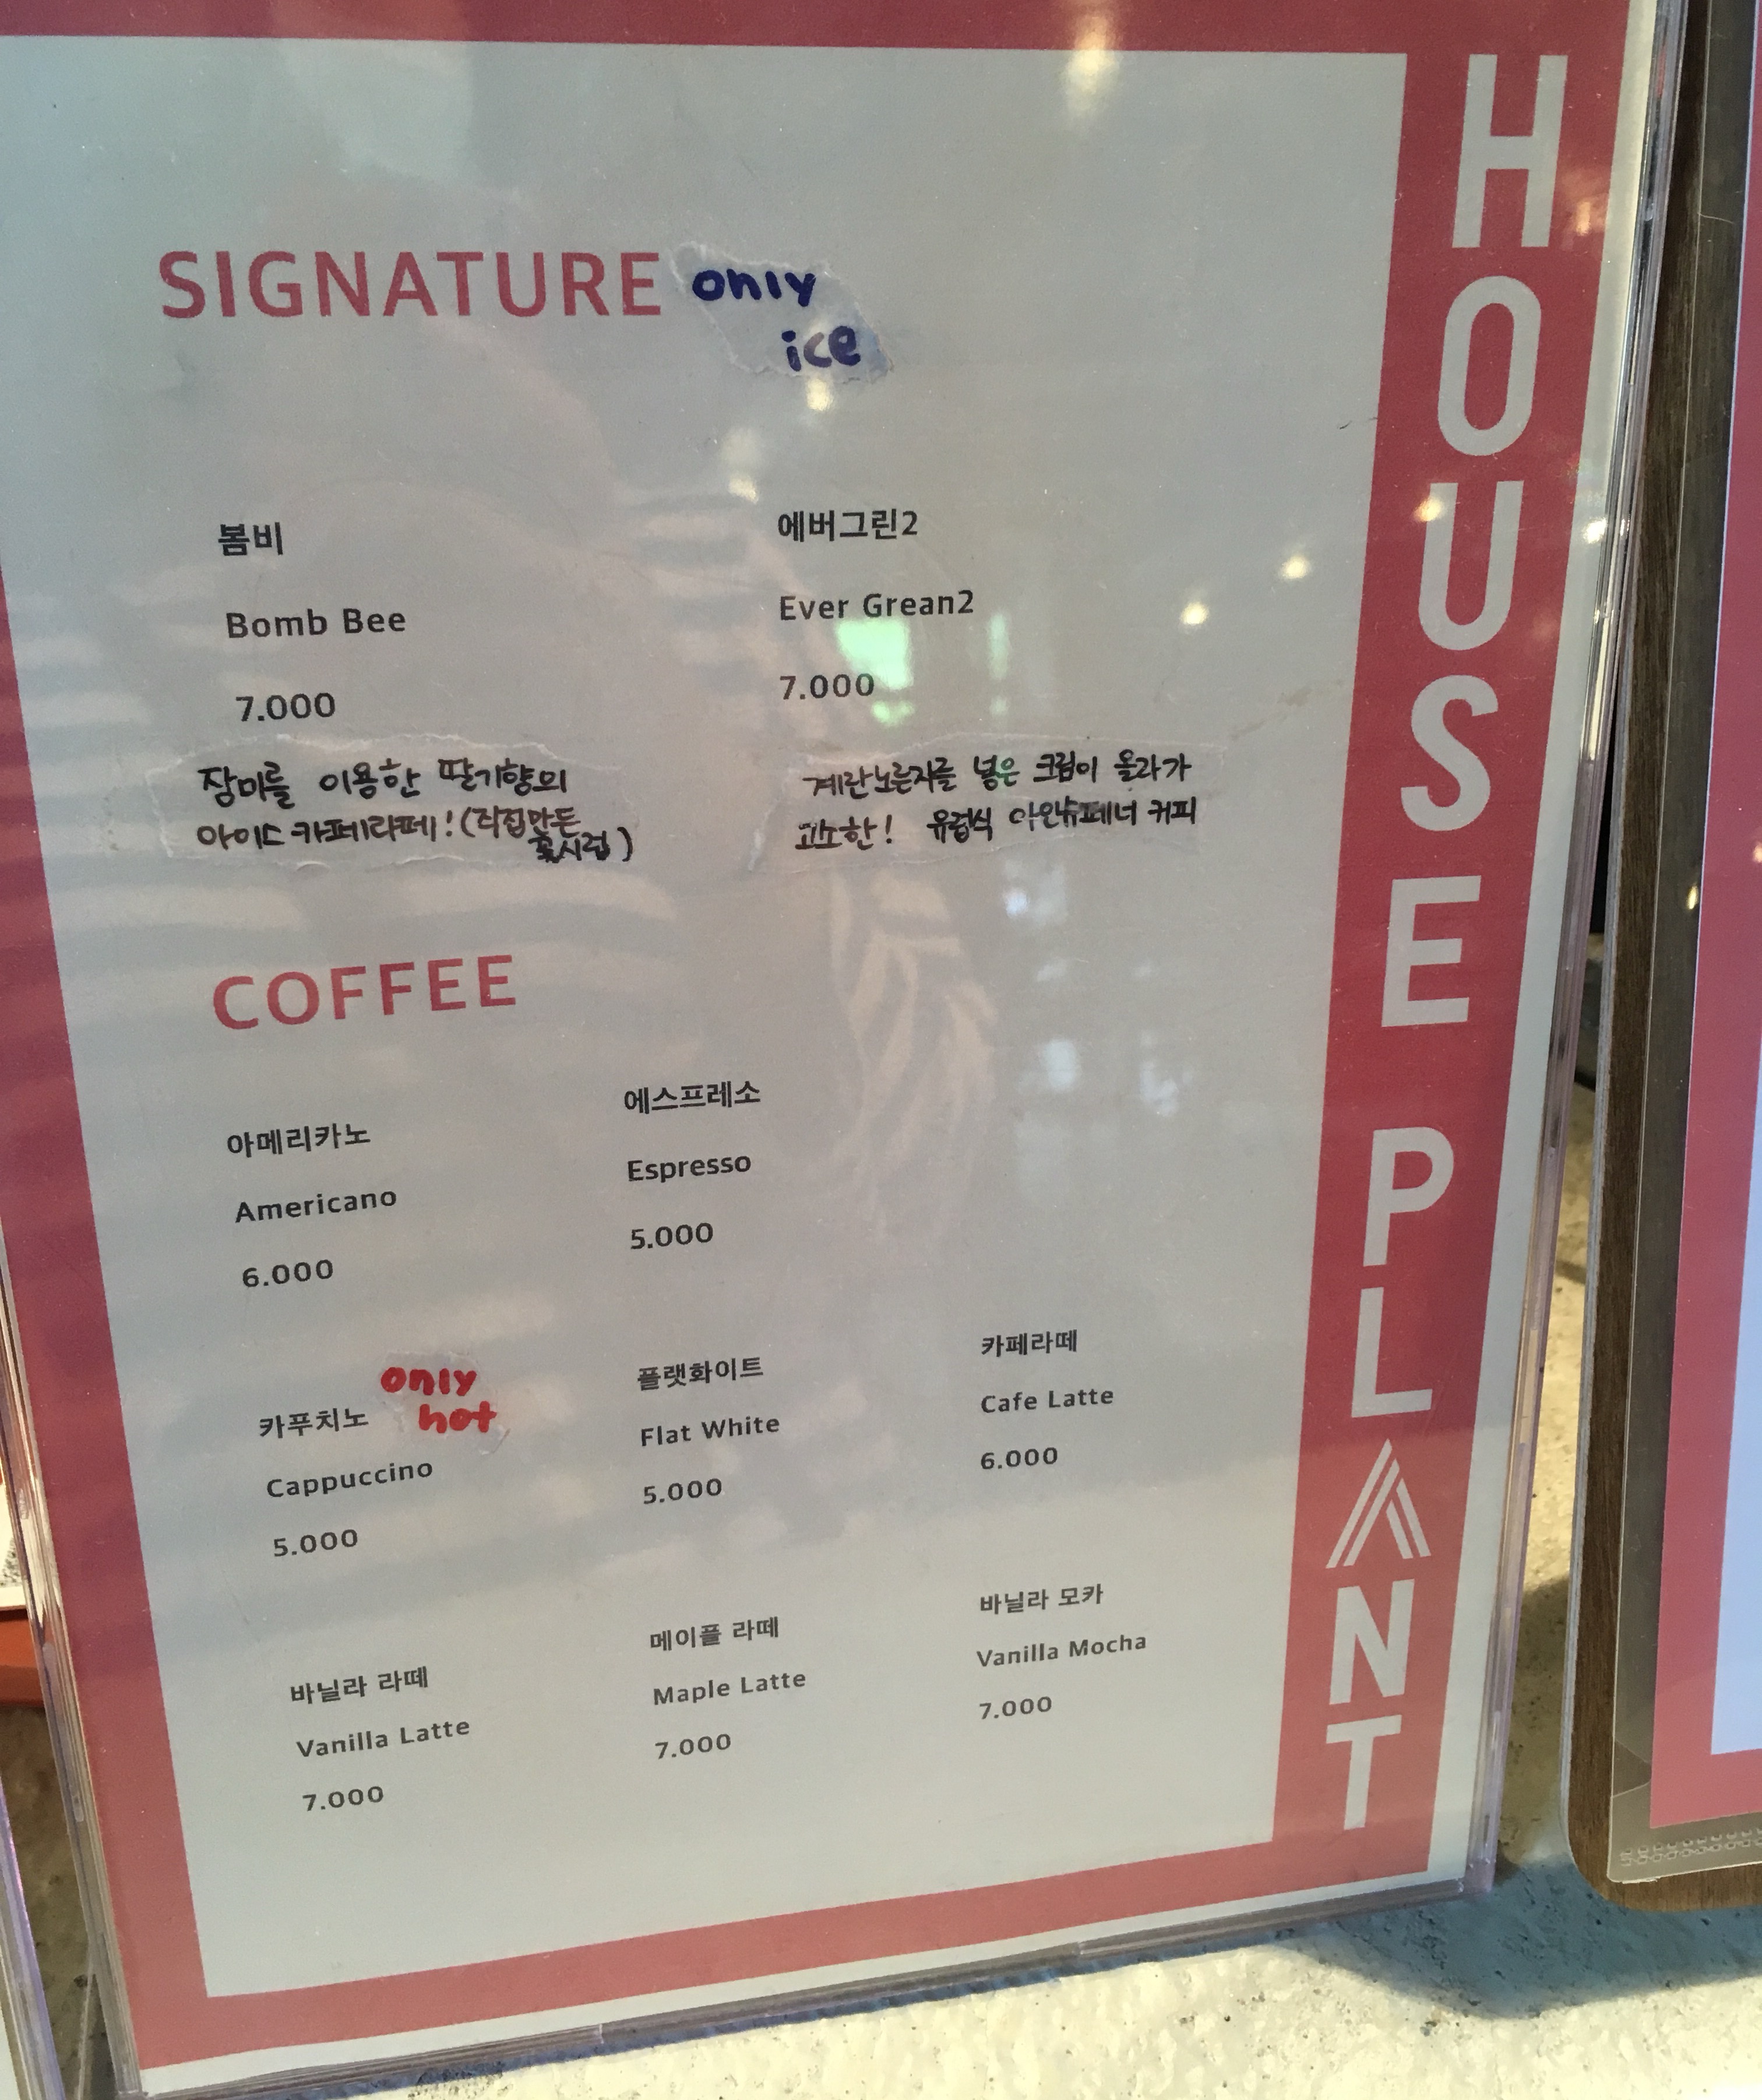 SIGNATURE only
ice
봄비
Bomb Bee
7.000
장미를 이용한 딸기향의
아이스 카페라떼! (직접만든
꽃시럽)
에버그린2
Ever Grean2
7.000
계란노른자를 넣은 크림이 올라가
고소한! 유럽식 아인슈페너 커피
COFFEE
아메리카노
Americano
6.000
에스프레소
Espresso
5.000
카푸치노 only
hot
Cappuccino
5.000
플랫화이트
Flat White
5.000
카페라떼
Cafe Latte
6.000
바닐라 라떼
Vanilla Latte
7.000
메이플 라떼
Maple Latte
7.000
바닐라 모카
Vanilla Mocha
7.000
HOUSE PLANT